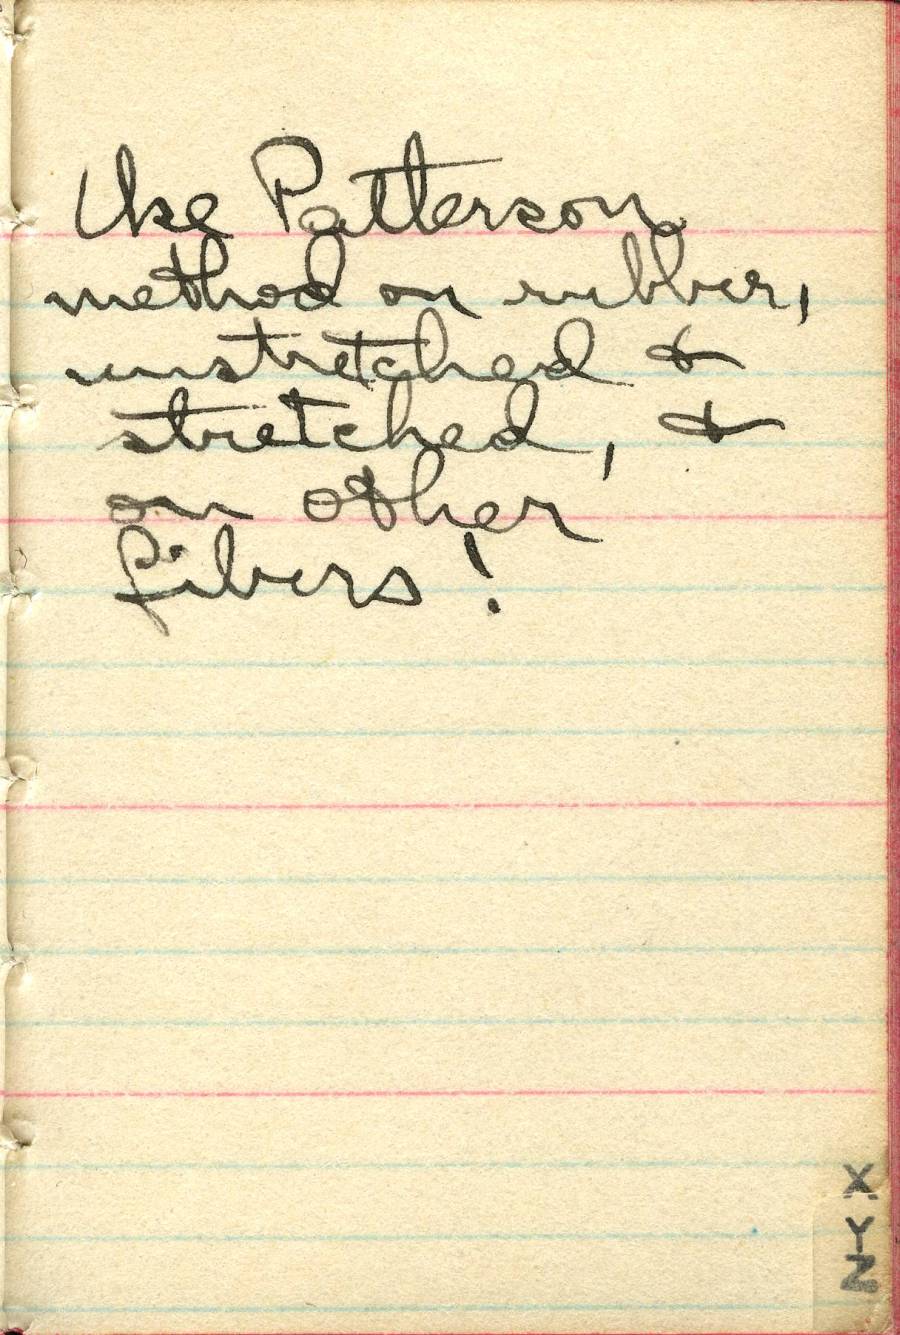 Use Patterson
method on rubber,
unstretched &
stretched, &
on other
fibers!
X
Y
Z